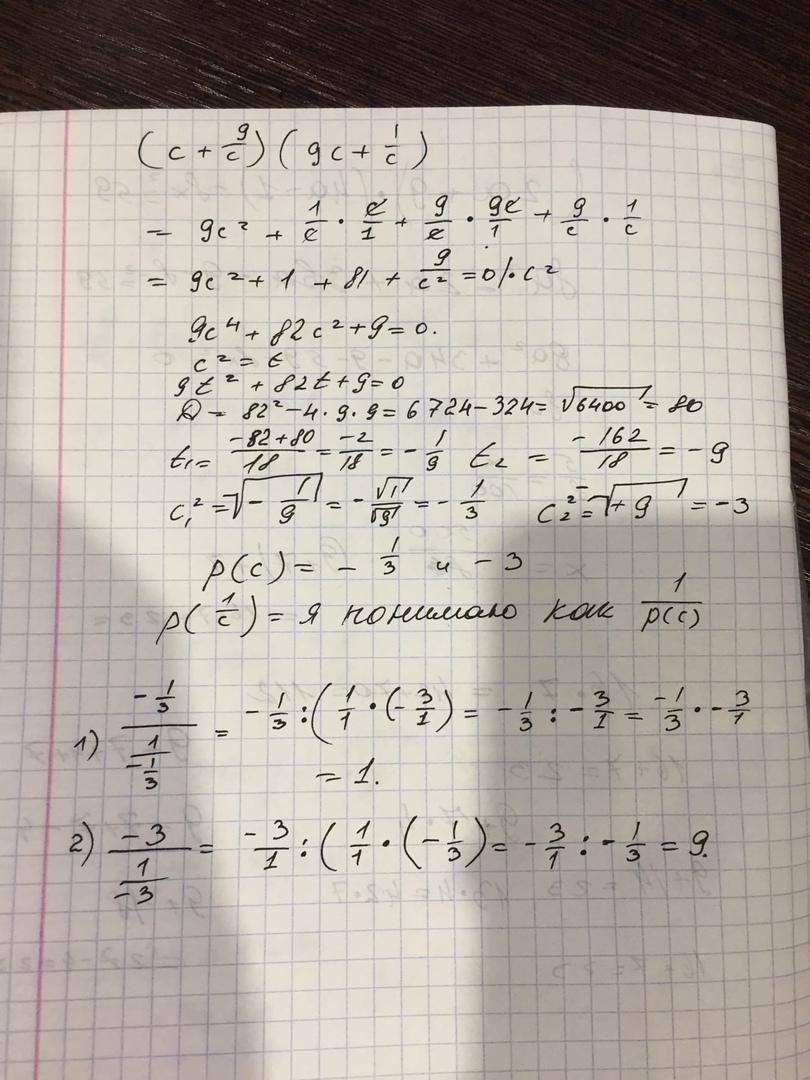 (c + 9/c) (9c + 1/c)
= 9c² + 1/c · c/1 + 9/c · 9c/1 + 9/c · 1/c
= 9c² + 1 + 81 + 9/c² = 0 | · c²
9c⁴ + 82c² + 9 = 0.
c² = t
9t² + 82t + 9 = 0
D = 82² - 4 · 9 · 9 = 6724 - 324 = √6400 = 80
t₁ = (-82+80)/18 = -2/18 = -1/9 t₂ = -162/18 = -9
c₁² = √(-1/9) = -√1/√9 = -1/3 c₂² = √+9 = -3
p(c) = -1/3 и -3
p(1/c) = я понимаю как 1/p(c)
1) (-1/3)/(1/(-1/3)) = -1/3 : (1/1 · (-3/1) = -1/3 : -3/1 = -1/3 · -3/1
= 1.
2) -3/(1/-3) = -3/1 : (1/1 · (-1/3) = -3/1 : -1/3 = 9.